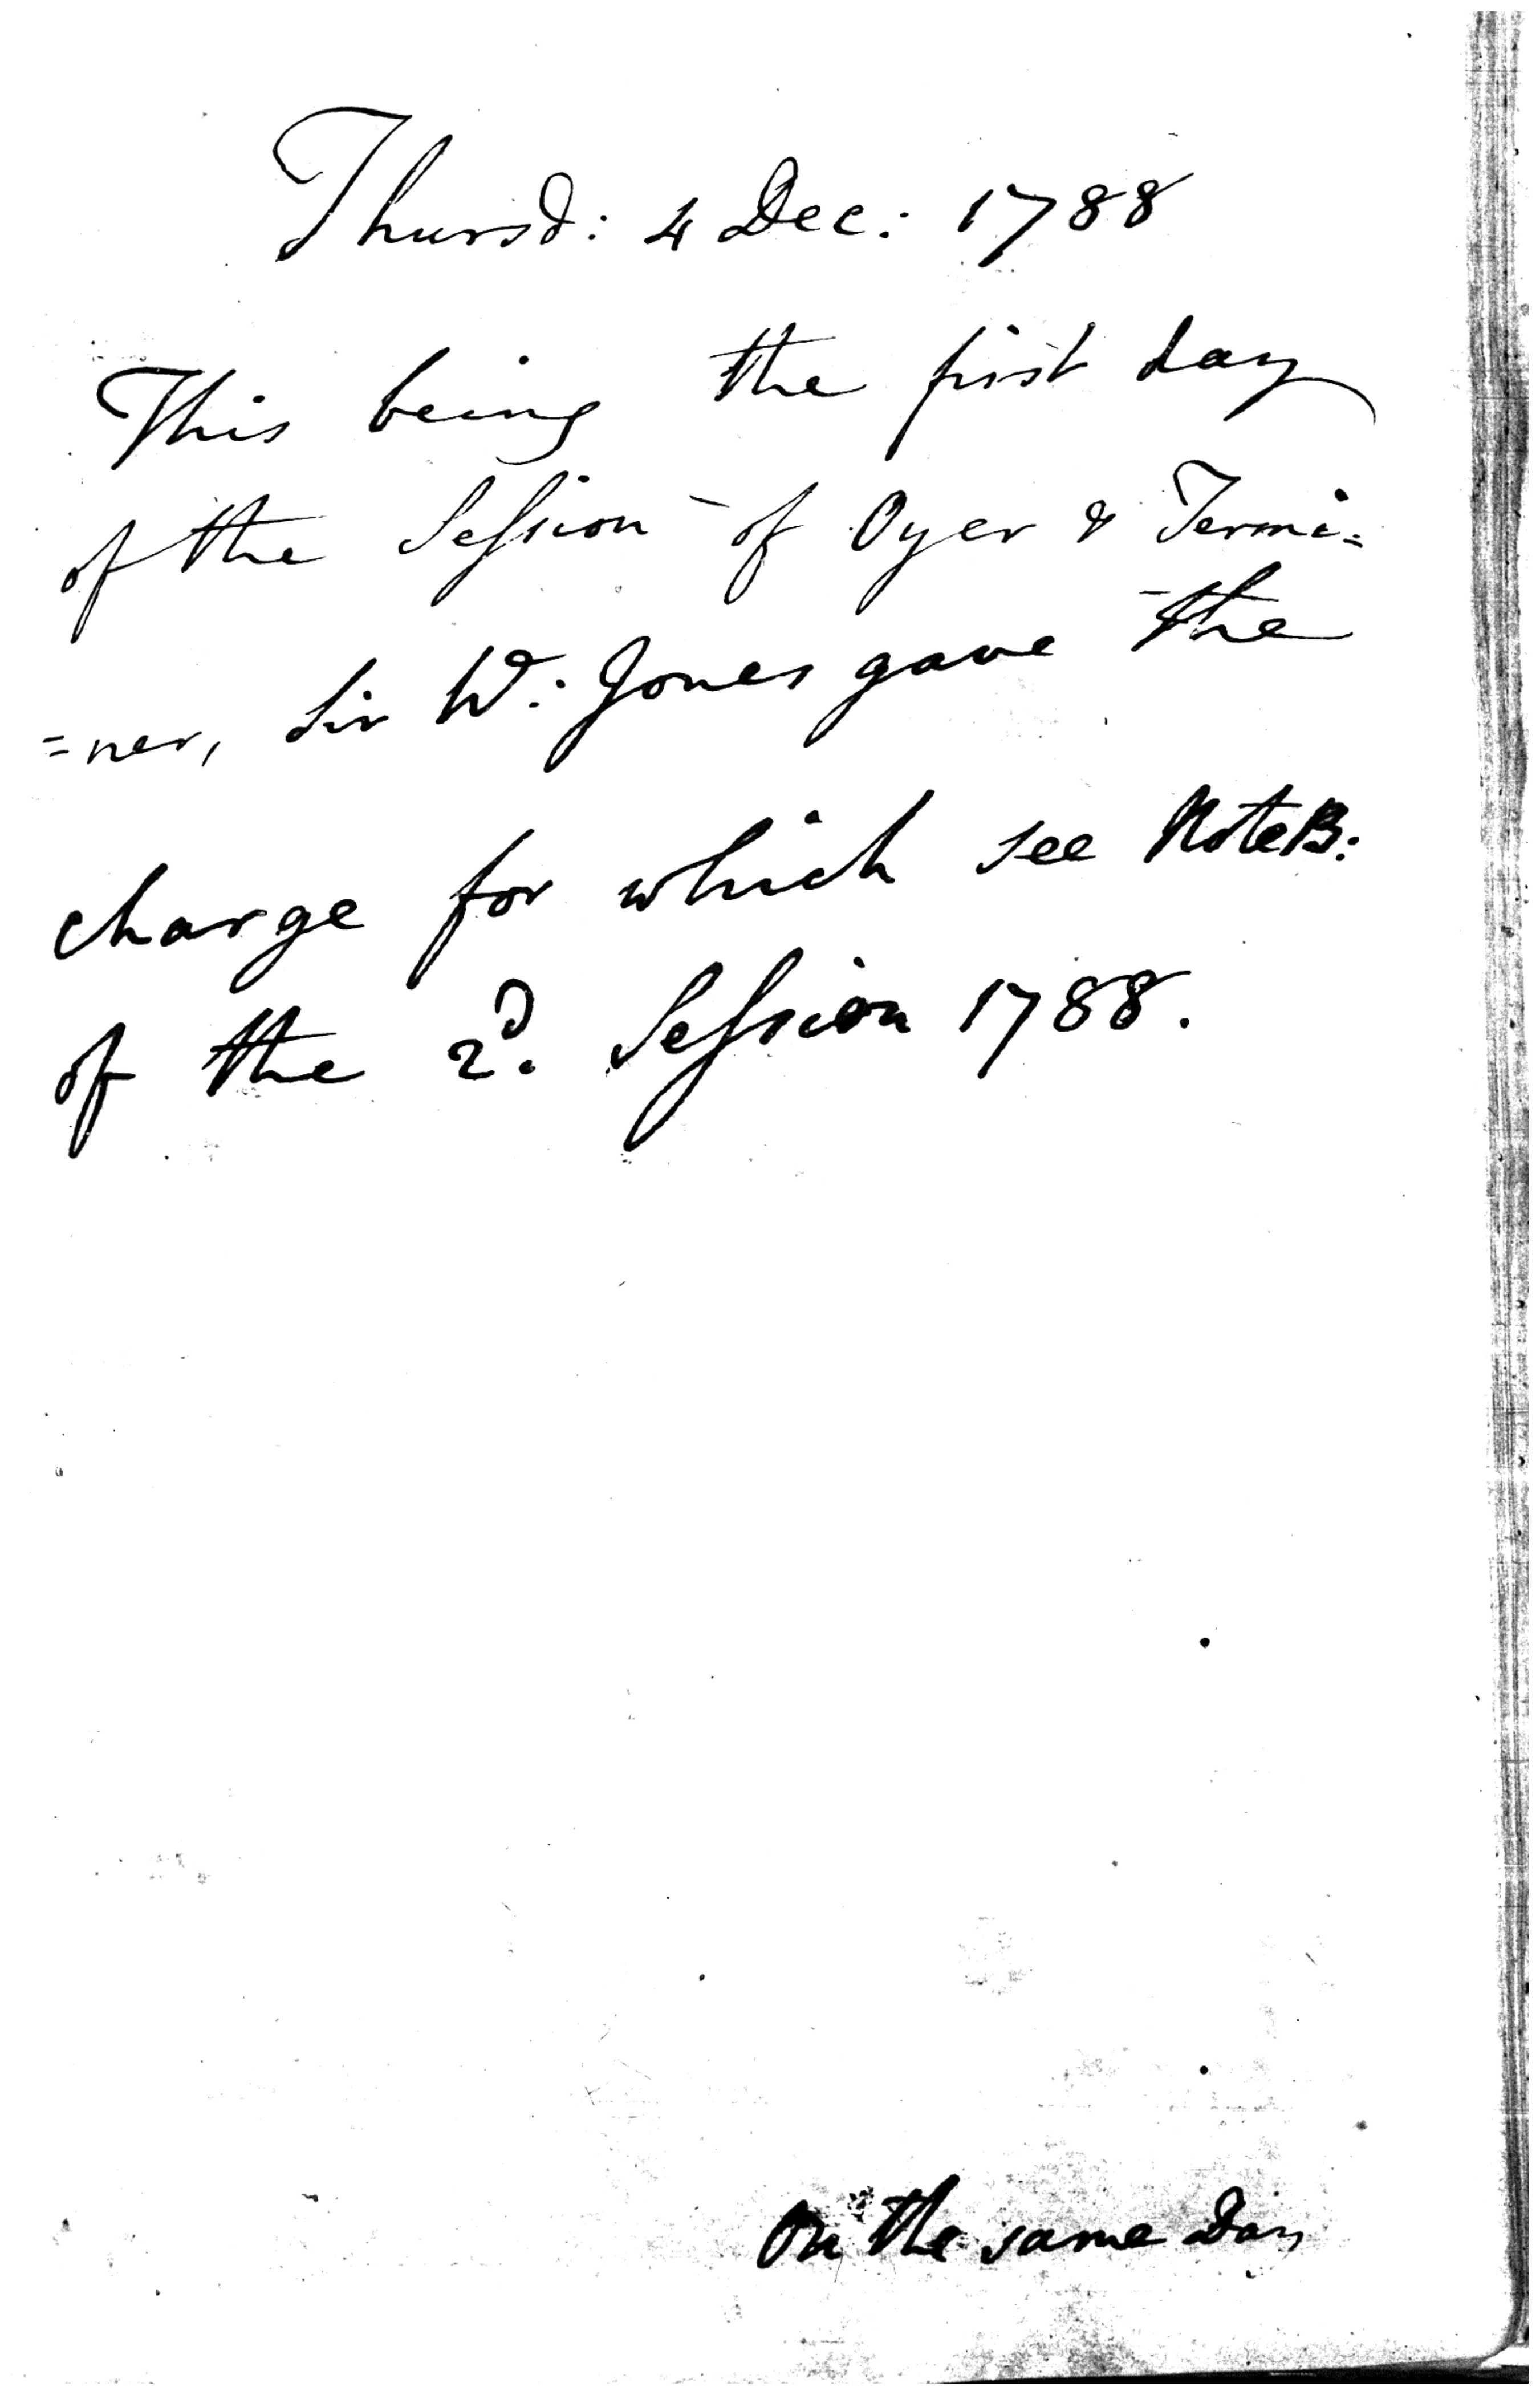 Thursd: 4 Dec: 1788
This being the first day
of the Session of Oyer & Termi=
=ner, Sir W: Jones gave the
charge for which see NoteB:
of the 2d. Session 1788.
On the same Day